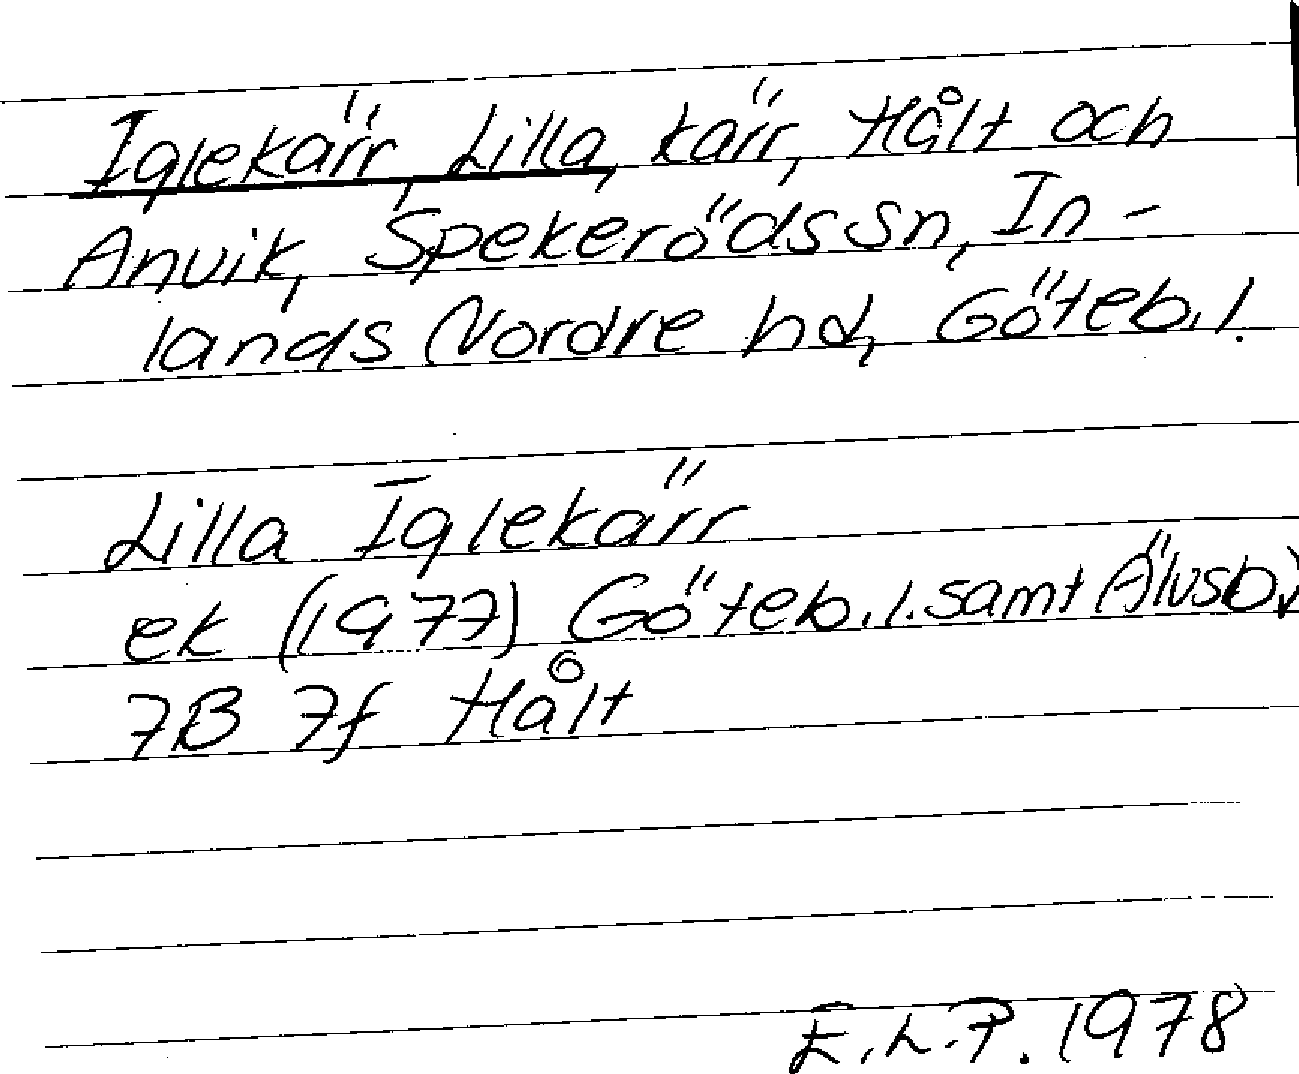 Iglekärr, Lilla, kärr, Hålt och
Anvik, Spekeröds sn, In-
lands Nordre hd, Göteb. l.
Lilla Iglekärr
ek (1977) Göteb. l. samt Älvsb.
7B 7f Hålt
E.L.P. 1978